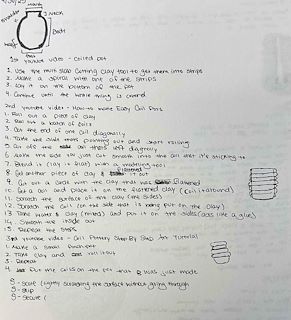 mouth
shoulder
neck
Body
foot
1st youtube video - coiled pot
1. Use the mini slab cutting clay tool to get them into strips
2. Make a spiral with one of the strips
3. Lay it on the bottom of the pot
4. Continue until the whole thing is coiled
2nd youtube video - How to make Easy Coil Pots
1. Roll out a piece of clay
2. Roll out a batch of coils
3. Cut the end of one coil diagonally
4. Take the side that's pointing out and start coiling
5. Cut off the end on that's left diagonally
6. Make the side that just cut smooth into the coil that it's sticking to
7. Blend it (lay it flat) with a wooden tool
8. Get another piece of clay & flattened it out
9. Cut out a circle with the clay that was flattened
10. Get a coil and place it on the flattened clay (coil it around)
11. Scratch the surface of the clay (the sides)
12. Scratch the coil (on the side that is being put on the clay)
13. Take water & clay (mixed) and put it on the sides (acts like a glue)
14. Smooth the inside out
15. Repeat the steps
3rd youtube video - Coil Pottery Step By Step for Tutorial
1. Make a small pinch pot
2. Take clay and roll it out
3. Repeat
4. Put the coils on the pot that was just made
S - score (lightly scratching the surface without going through
S - slip
S - secure (